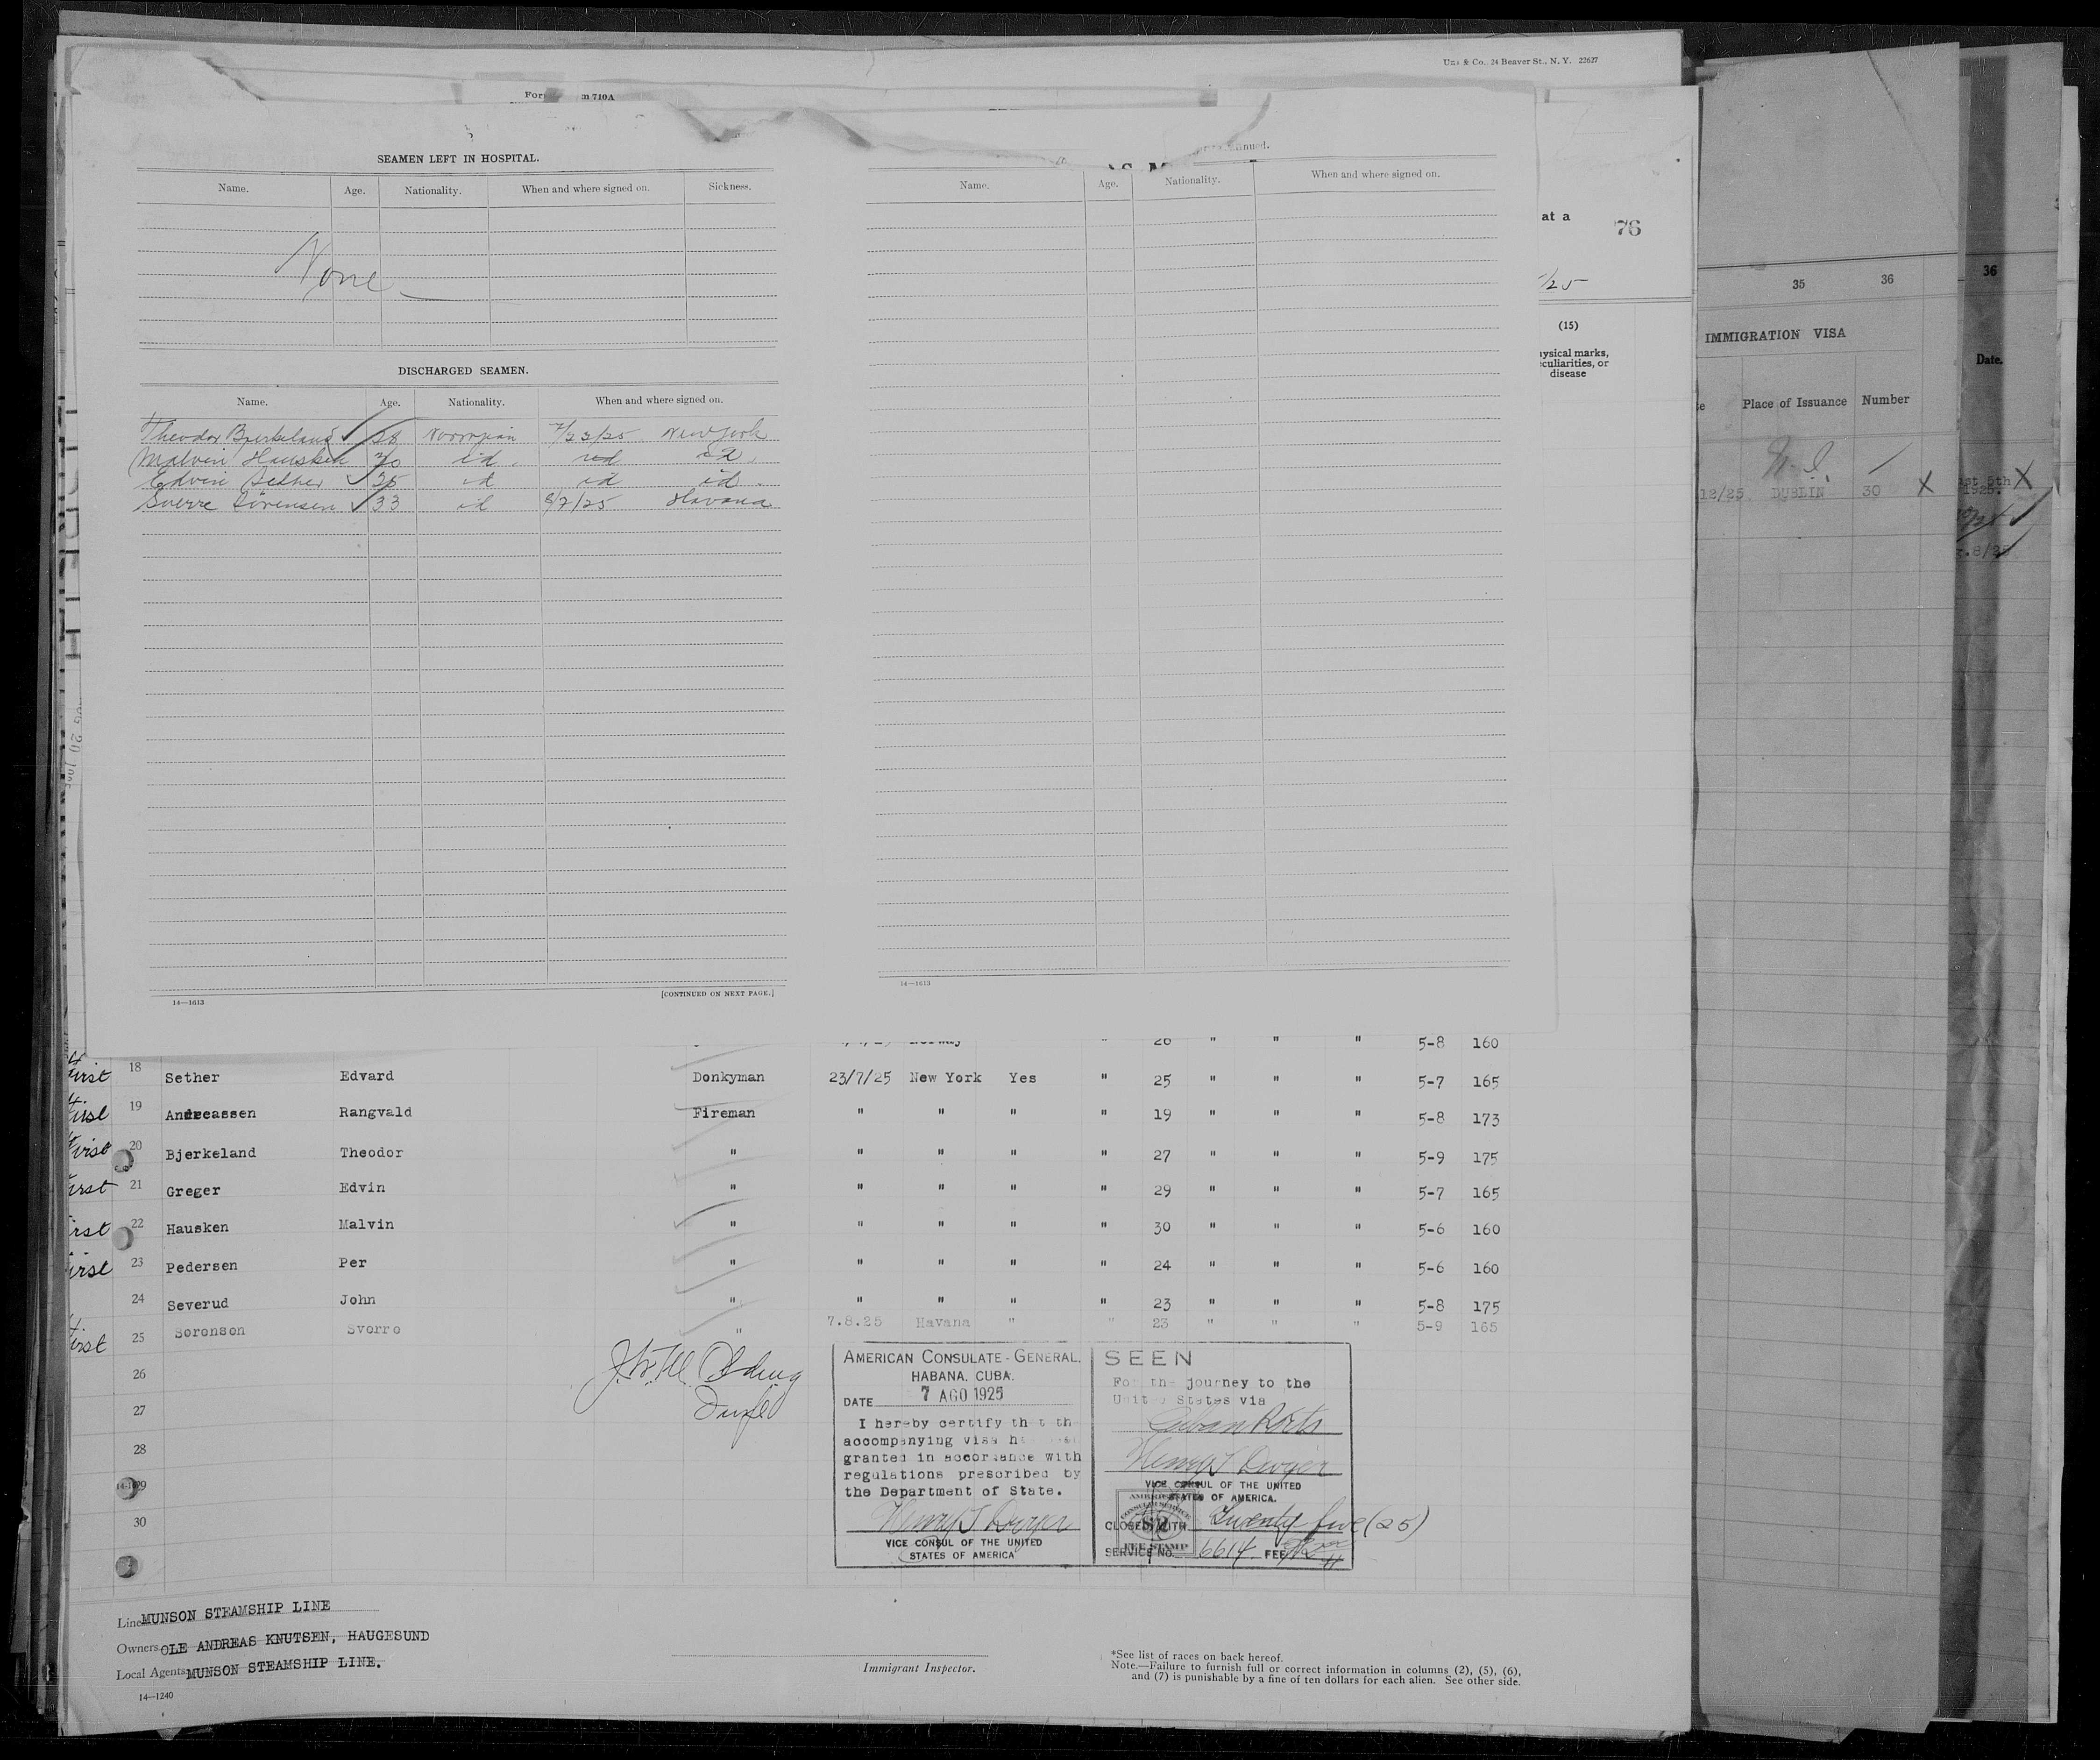 Co., 24 Beaver St., N. Y. 22627
m 710A
SEAMEN LEFT IN HOSPITAL.
Name. Age. Nationality. When and where signed on. Sickness.
None
DISCHARGED SEAMEN.
Name. Age. Nationality. When and where signed on.
Theodor Bjerkeland 28 7/23/25 New York
Malvin Hausken 30 id. id id.
Edvin Sether 25 id id id.
Sverre Sörensen 33 id 8/7/25 Havana
14—1613 [CONTINUED ON NEXT PAGE.]
Name. Age. Nationality. When and where signed on.
14—1613
at a 76
/25
(15)
marks,
or
disease
35 36
IMMIGRATION VISA
Place of Issuance Number
12/25 DUBLIN 30 X
36
Date.
5th X
1925.
8/25
26 " " " 5-8 160
First 18 Sether Edvard Donkyman 23/7/25 New York Yes " 25 " " " 5-7 165
First 19 Andreassen Rangvald Fireman " " " " 19 " " " 5-8 173
First 20 Bjerkeland Theodor " " " " " 27 " " " 5-9 175
First 21 Greger Edvin " " " " " 29 " " " 5-7 165
First 22 Hausken Malvin " " " " " 30 " " " 5-6 160
First 23 Pedersen Per " " " " " 24 " " " 5-6 160
24 Severud John " " " " " 23 " " " 5-8 175
First 25 Sorenson Sverre " 7.8.25 Havana " " 23 " " " 5-9 165
26
27
28
30
AMERICAN CONSULATE-GENERAL.
HABANA, CUBA.
DATE 7 AGO 1925
I hereby certify that the
accompanying visa has been
granted in accordance with
regulations prescribed by
the Department of State.
Henry T Dwyer
VICE CONSUL OF THE UNITED
STATES OF AMERICA
SEEN
For the journey to the
United States via
Cuban Ports
Henry T Dwyer
VICE CONSUL OF THE UNITED
STATES OF AMERICA.
CLOSED WITH Twenty five (25)
FEE STAMP
SERVICE No. 6614 FEE
Line MUNSON STEAMSHIP LINE
Owners OLE ANDREAS KNUTSEN, HAUGESUND
Local Agents MUNSON STEAMSHIP LINE.
14—1240
Immigrant Inspector.
*See list of races on back hereof.
Note.—Failure to furnish full or correct information in columns (2), (5), (6),
and (7) is punishable by a fine of ten dollars for each alien. See other side.